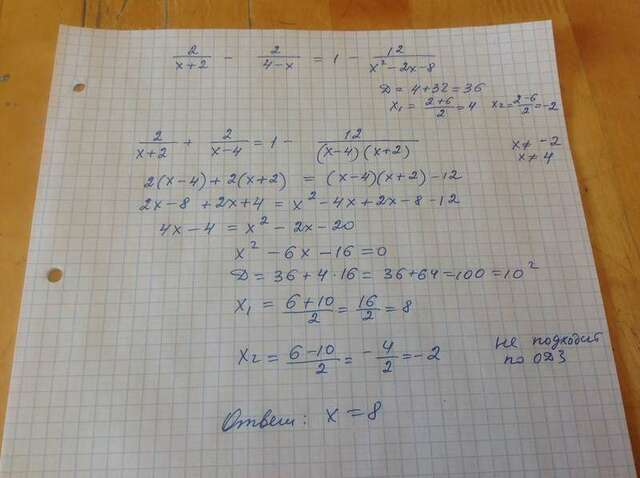 2/(x+2) - 2/(4-x) = 1 - 12/(x²-2x-8)
D = 4+32=36
x₁ = (2+6)/2 = 4 x₂=(2-6)/2=-2
2/(x+2) + 2/(x-4) = 1 - 12/((x-4)(x+2)) x≠ -2
x≠ 4
2(x-4)+2(x+2) = (x-4)(x+2)-12
2x-8+2x+4 = x²-4x+2x-8-12
4x-4 = x²-2x-20
x²-6x-16=0
D = 36+4·16= 36+64=100=10²
x₁ = (6+10)/2 = 16/2 = 8
x₂= (6-10)/2 = -4/2 = -2 не подходит
по ОДЗ
Ответ: x = 8